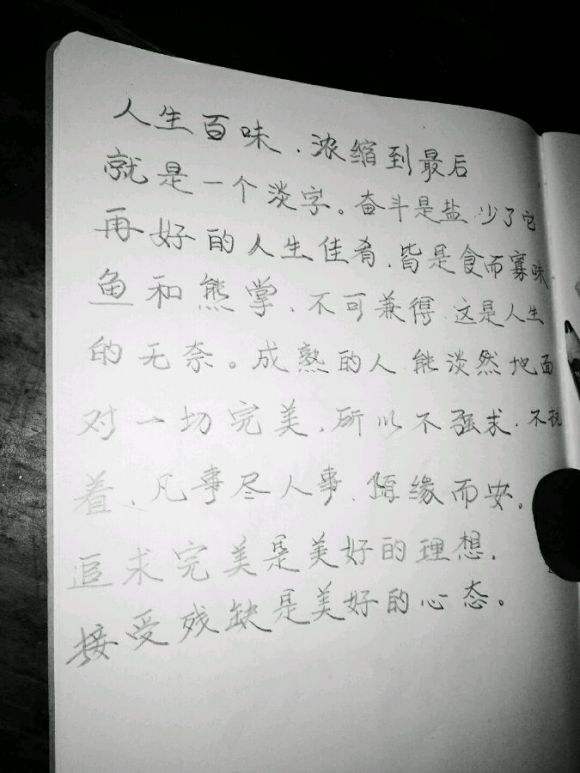 人生百味、浓缩到最后
就是一个淡字。奋斗是盐 少了它
再好的人生佳肴,皆是食而寡味
鱼和熊掌、不可兼得 这是人生
的无奈。成熟的人 能淡然地面
对一切完美,所以不强求、不执
着、凡事尽人事、随缘而安。
追求完美是美好的理想,
接受残缺是美好的心态。